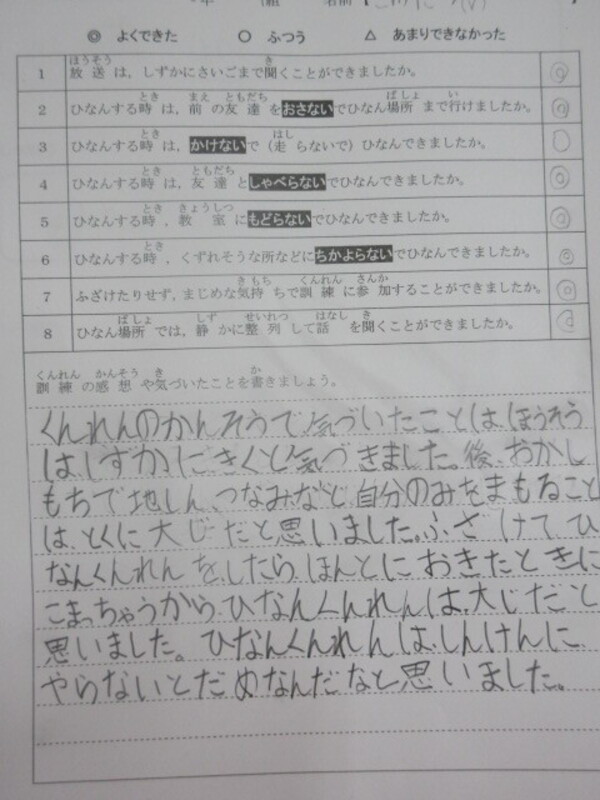 年 組 名前
◎ よくできた ○ ふつう △ あまりできなかった
1 放送は，しずかにさいごまで聞くことができましたか。 ◎
2 ひなんする時は，前の友達をおさないでひなん場所まで行けましたか。 ◎
3 ひなんする時は，かけないで（走らないで）ひなんできましたか。 ○
4 ひなんする時は，友達としゃべらないでひなんできましたか。 ◎
5 ひなんする時，教室にもどらないでひなんできましたか。 ◎
6 ひなんする時，くずれそうな所などにちかよらないでひなんできましたか。 ◎
7 ふざけたりせず，まじめな気持ちで訓練に参加することができましたか。 ◎
8 ひなん場所では，静かに整列して話を聞くことができましたか。 ◎
訓練の感想や気づいたことを書きましょう。
くんれんのかんそうで気づいたことは、ほうそう
は、しずかにきくと気づきました。後、おかし
もちで地しん、つなみなど、自分のみをまもること
は、とくに大じだと思いました。ふざけてひ
なんくんれんをしたら、ほんとにおきたときに
こまっちゃうから、ひなんくんれんは、大じだと
思いました。ひなんくんれんは、しんけんに、
やらないとだめなんだなと思いました。